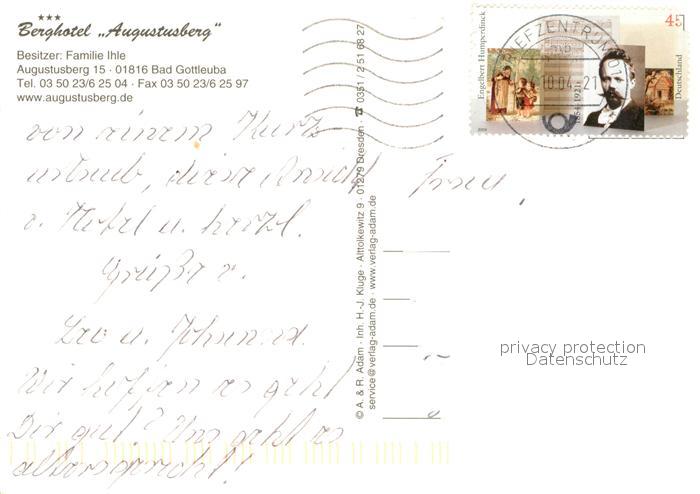 ★★★
Berghotel „Augustusberg“
Besitzer: Familie Ihle
Augustusberg 15 · 01816 Bad Gottleuba
Tel. 03 50 23/6 25 04 · Fax 03 50 23/6 25 97
www.augustusberg.de
von einem Kurz-
urlaub, diese Ansicht
v. Hotel u. herzl.
Grüße v.
Leo u. Johanna.
Wir hoffen es geht
Dir gut? Uns geht es
altersgerecht!
Frau
© A. & R. Adam · Inh. H.-J. Kluge · Alttolkewitz 9 · 01279 Dresden · ☎ 0351 / 2 51 68 27
service@verlag-adam.de · www.verlag-adam.de
Engelbert Humperdinck
45
1854-1921
Deutschland
BRIEFZENTRUM
10.04-21
privacy protection
Datenschutz